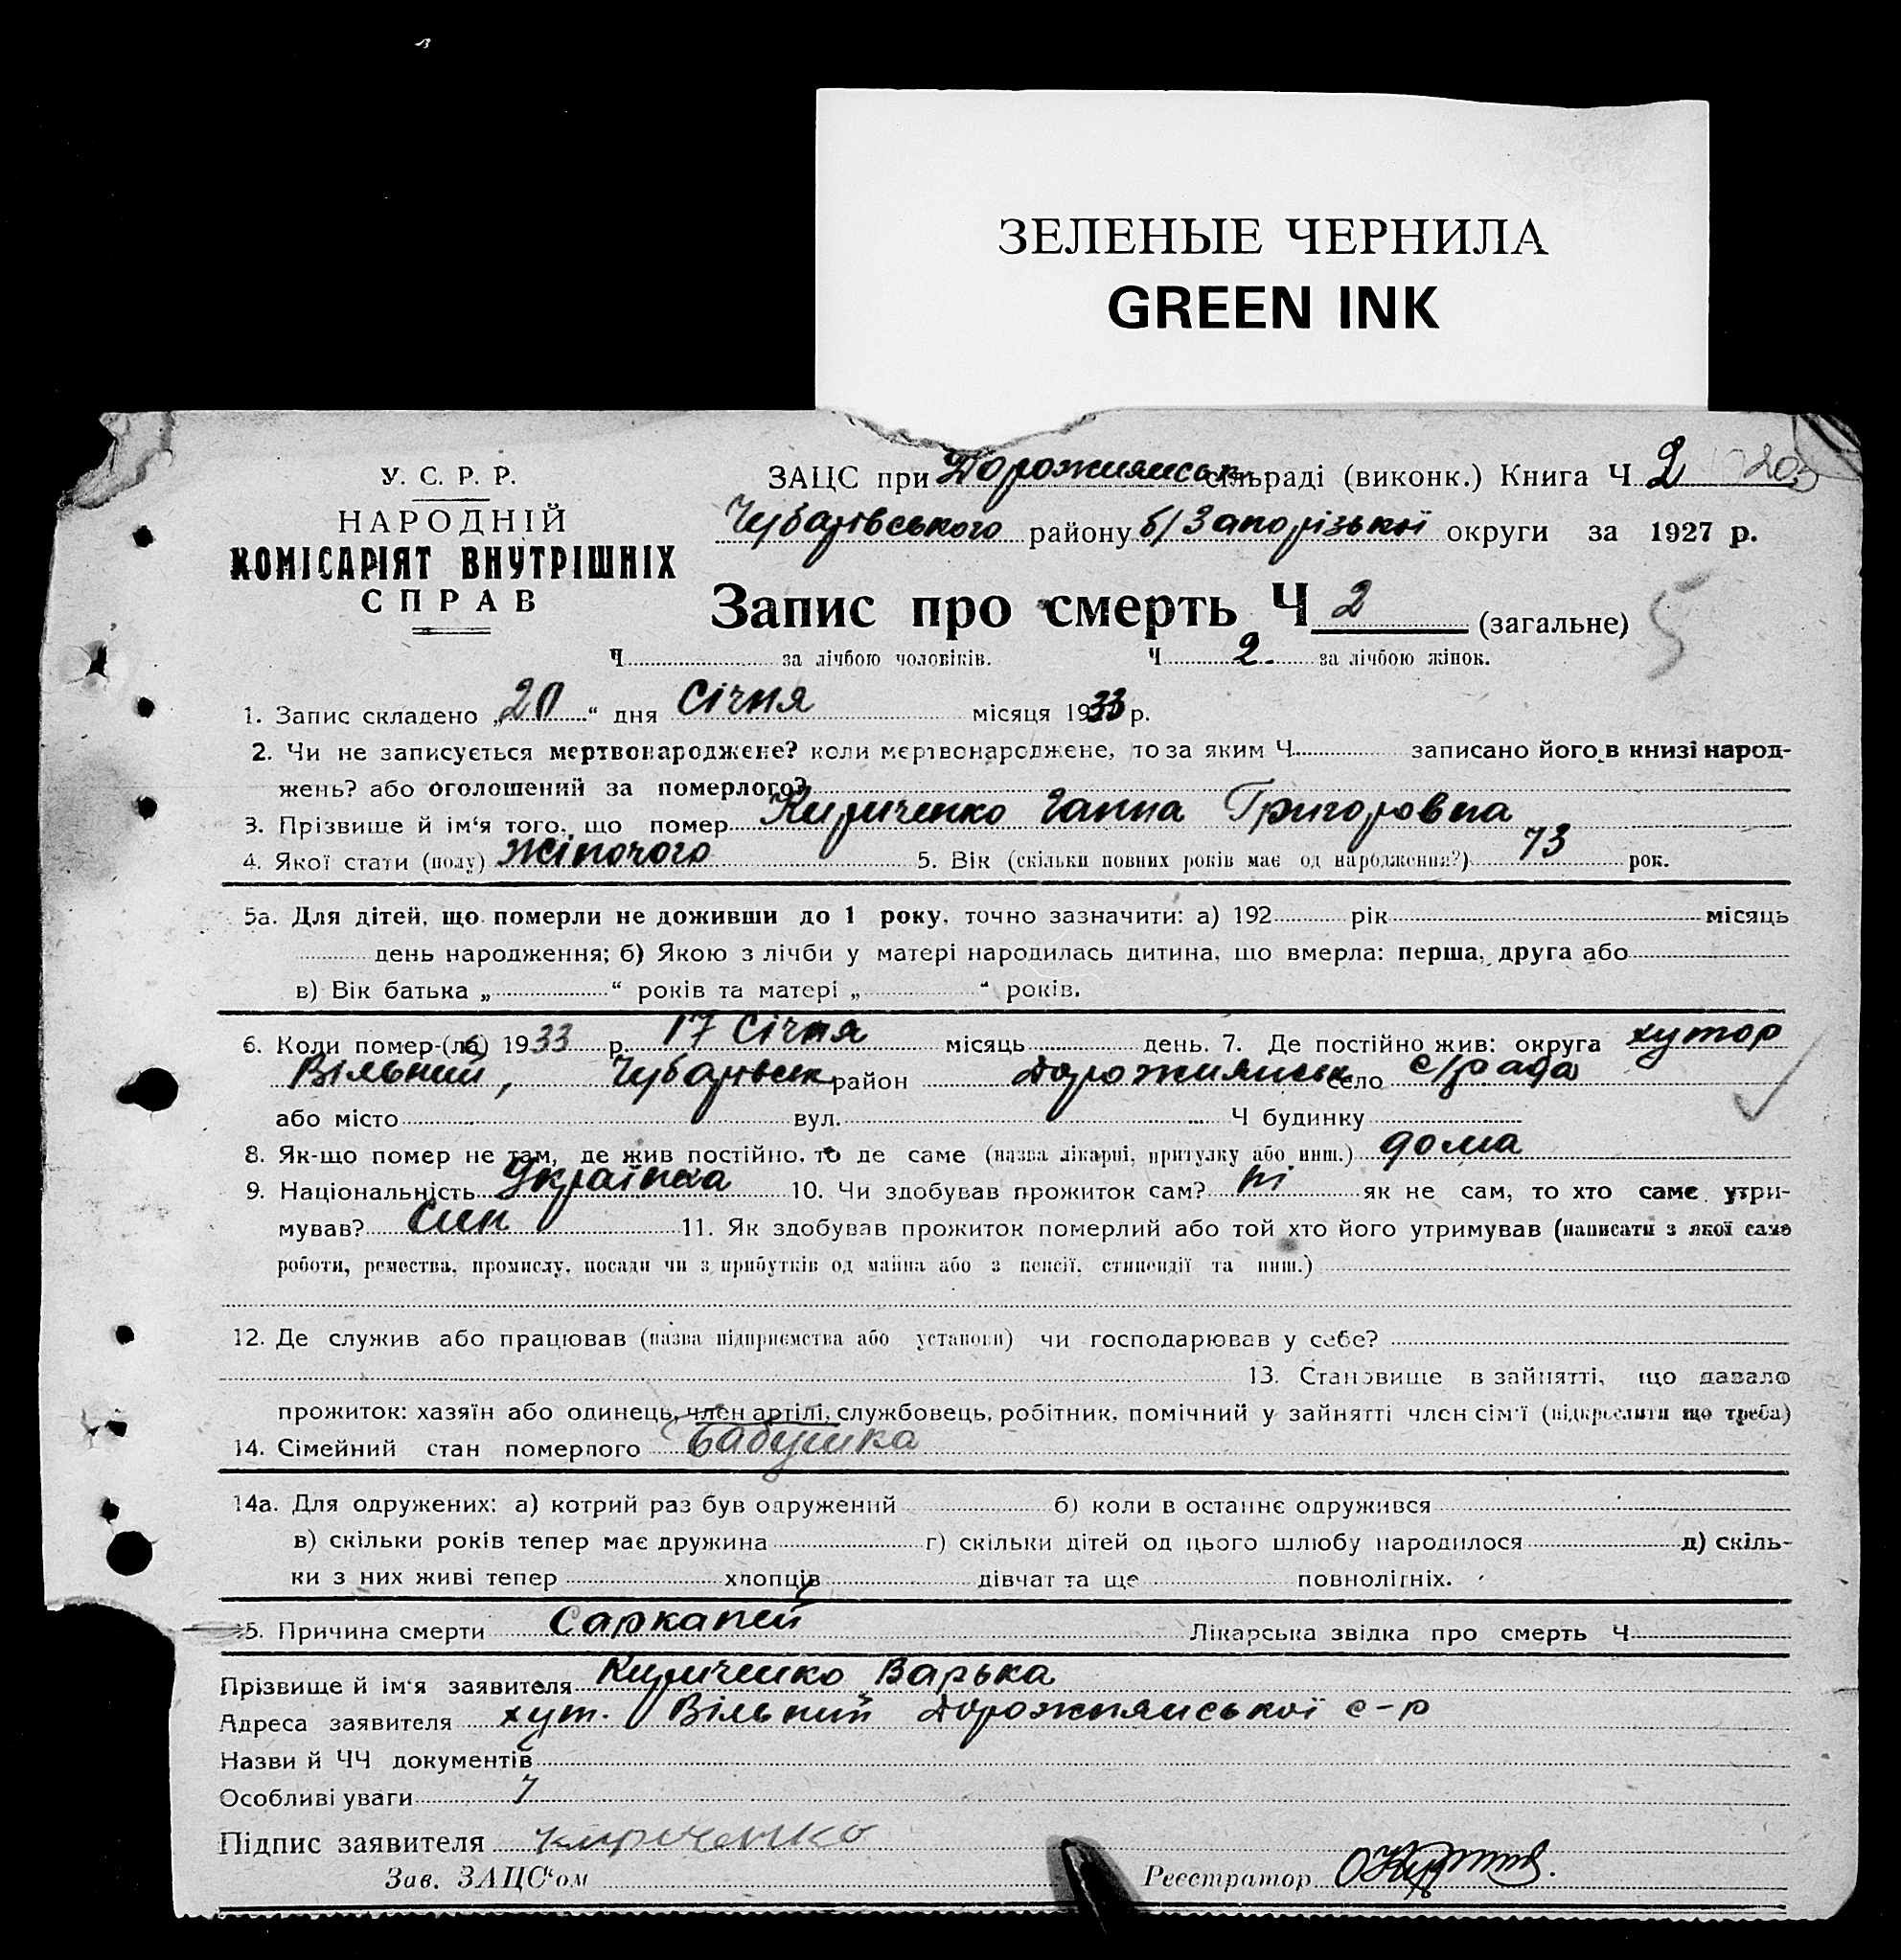 ЗЕЛЕНЫЕ ЧЕРНИЛА
GREEN INK
У. С. Р. Р.
НАРОДНІЙ
КОМІСАРІЯТ ВНУТРІШНІХ
СПРАВ
ЗАЦС при Дорожнянськ сільраді (виконк.) Книга Ч 2 203
Чубарівського району б/Запорізької округи за 1927 р.
Запис про смерть Ч 2 (загальне) 5
Ч за лічбою чоловіків. Ч 2. за лічбою жінок.
1. Запис складено „20“ дня Січня місяця 1933 р.
2. Чи не записується мертвонароджене? коли мертвонароджене, то за яким Ч записано його в книзі народ-
жень? або оголошений за померлого?
3. Прізвище й ім‘я того, що помер Кириченко Ганна Григоровна
4. Якої стати (полу) Жіночого 5. Вік (скільки повних років має од народження?) 73 рок.
5а. Для дітей, що померли не доживши до 1 року, точно зазначити: а) 192 рік місяць
день народження; б) Якою з лічби у матері народилась дитина, що вмерла: перша, друга або
в) Вік батька „ “ років та матері „ “ років.
6. Коли помер-(ла) 1933 р. 17 Січня місяць день. 7. Де постійно жив: округа хутор
Вільний, Чубарівськ район Дорожнянськ село с/рада
або місто вул. Ч будинку
8. Як-що помер не там, де жив постійно, то де саме (назва лікарні, притулку або инш.) дома
9. Національність Українка 10. Чи здобував прожиток сам? ні як не сам, то хто саме утри-
мував? Син 11. Як здобував прожиток померлий або той хто його утримував (написати з якої саме
роботи, ремества, промислу, посади чи з прибутків од майна або з пенсії, стипендії та инш.)
12. Де служив або працював (назва підприємства або установи) чи господарював у себе?
13. Становище в зайнятті, що давало
прожиток: хазяїн або одинець, член артілі, службовець, робітник, помічний у зайнятті член сім‘ї (підкреслити що треба)
14. Сімейний стан померлого бабушка
14а. Для одружених: а) котрий раз був одружений б) коли в останнє одружився
в) скільки років тепер має дружина г) скільки дітей од цього шлюбу народилося д) скіль-
ки з них живі тепер хлопців дівчат та ще повнолітніх.
15. Причина смерти Саркапей Лікарська звідка про смерть Ч
Прізвище й ім‘я заявителя Кириченко Варька
Адреса заявителя хут. Вільний Дорожнянської с-р
Назви й ЧЧ документів
Особливі уваги
Підпис заявителя кириченко
Зав. ЗАЦС‘ом Реєстратор